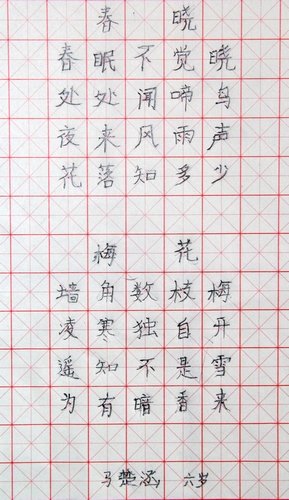 春 晓
春眠不觉晓
处处闻啼鸟
夜来风雨声
花落知多少
梅 花
墙角数枝梅
凌寒独自开
遥知不是雪
为有暗香来
马楚涵 六岁